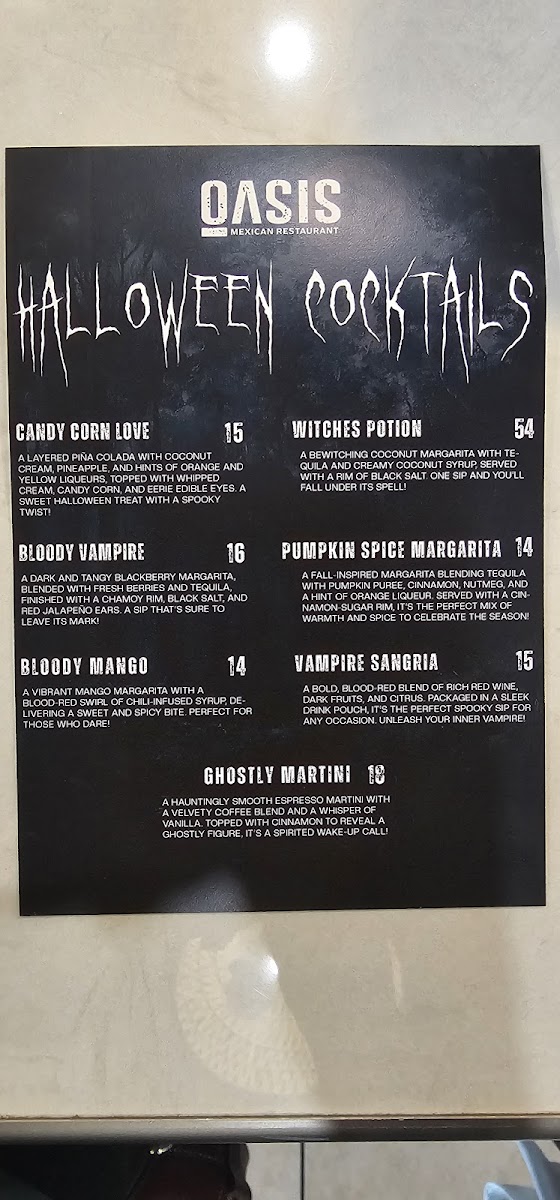 OASIS
MEXICAN RESTAURANT
HALLOWEEN COCKTAILS
CANDY CORN LOVE 15
A LAYERED PIÑA COLADA WITH COCONUT
CREAM, PINEAPPLE, AND HINTS OF ORANGE AND
YELLOW LIQUEURS, TOPPED WITH WHIPPED
CREAM, CANDY CORN, AND EERIE EDIBLE EYES. A
SWEET HALLOWEEN TREAT WITH A SPOOKY
TWIST!
WITCHES POTION 54
A BEWITCHING COCONUT MARGARITA WITH TE-
QUILA AND CREAMY COCONUT SYRUP, SERVED
WITH A RIM OF BLACK SALT. ONE SIP AND YOU'LL
FALL UNDER ITS SPELL!
BLOODY VAMPIRE 16
A DARK AND TANGY BLACKBERRY MARGARITA,
BLENDED WITH FRESH BERRIES AND TEQUILA,
FINISHED WITH A CHAMOY RIM, BLACK SALT, AND
RED JALAPEÑO EARS. A SIP THAT'S SURE TO
LEAVE ITS MARK!
PUMPKIN SPICE MARGARITA 14
A FALL-INSPIRED MARGARITA BLENDING TEQUILA
WITH PUMPKIN PUREE, CINNAMON, NUTMEG, AND
A HINT OF ORANGE LIQUEUR. SERVED WITH A CIN-
NAMON-SUGAR RIM, IT'S THE PERFECT MIX OF
WARMTH AND SPICE TO CELEBRATE THE SEASON!
BLOODY MANGO 14
A VIBRANT MANGO MARGARITA WITH A
BLOOD-RED SWIRL OF CHILI-INFUSED SYRUP, DE-
LIVERING A SWEET AND SPICY BITE. PERFECT FOR
THOSE WHO DARE!
VAMPIRE SANGRIA 15
A BOLD, BLOOD-RED BLEND OF RICH RED WINE,
DARK FRUITS, AND CITRUS. PACKAGED IN A SLEEK
DRINK POUCH, IT'S THE PERFECT SPOOKY SIP FOR
ANY OCCASION. UNLEASH YOUR INNER VAMPIRE!
GHOSTLY MARTINI 18
A HAUNTINGLY SMOOTH ESPRESSO MARTINI WITH
A VELVETY COFFEE BLEND AND A WHISPER OF
VANILLA. TOPPED WITH CINNAMON TO REVEAL A
GHOSTLY FIGURE, IT'S A SPIRITED WAKE-UP CALL!